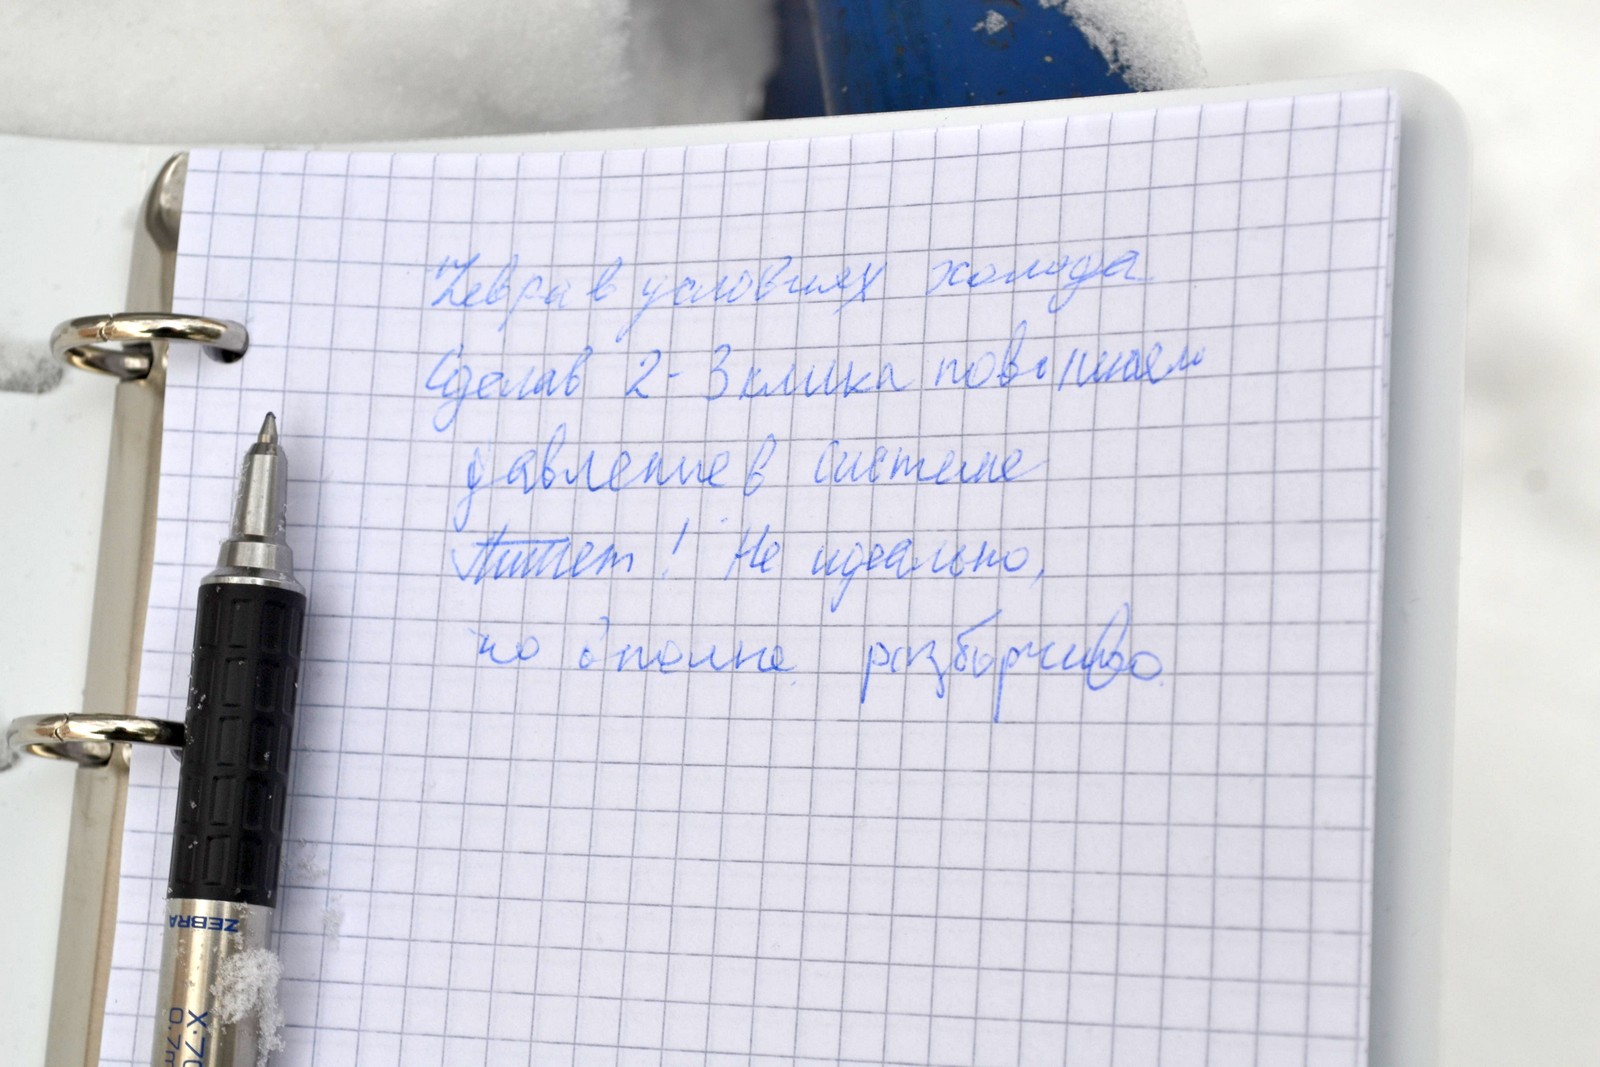 Zевра в условиях холода
Сделав 2-3 клика повышаем
давление в системе
Пишет! Не идеально,
но вполне разборчиво.
ZEBRA
0.7m